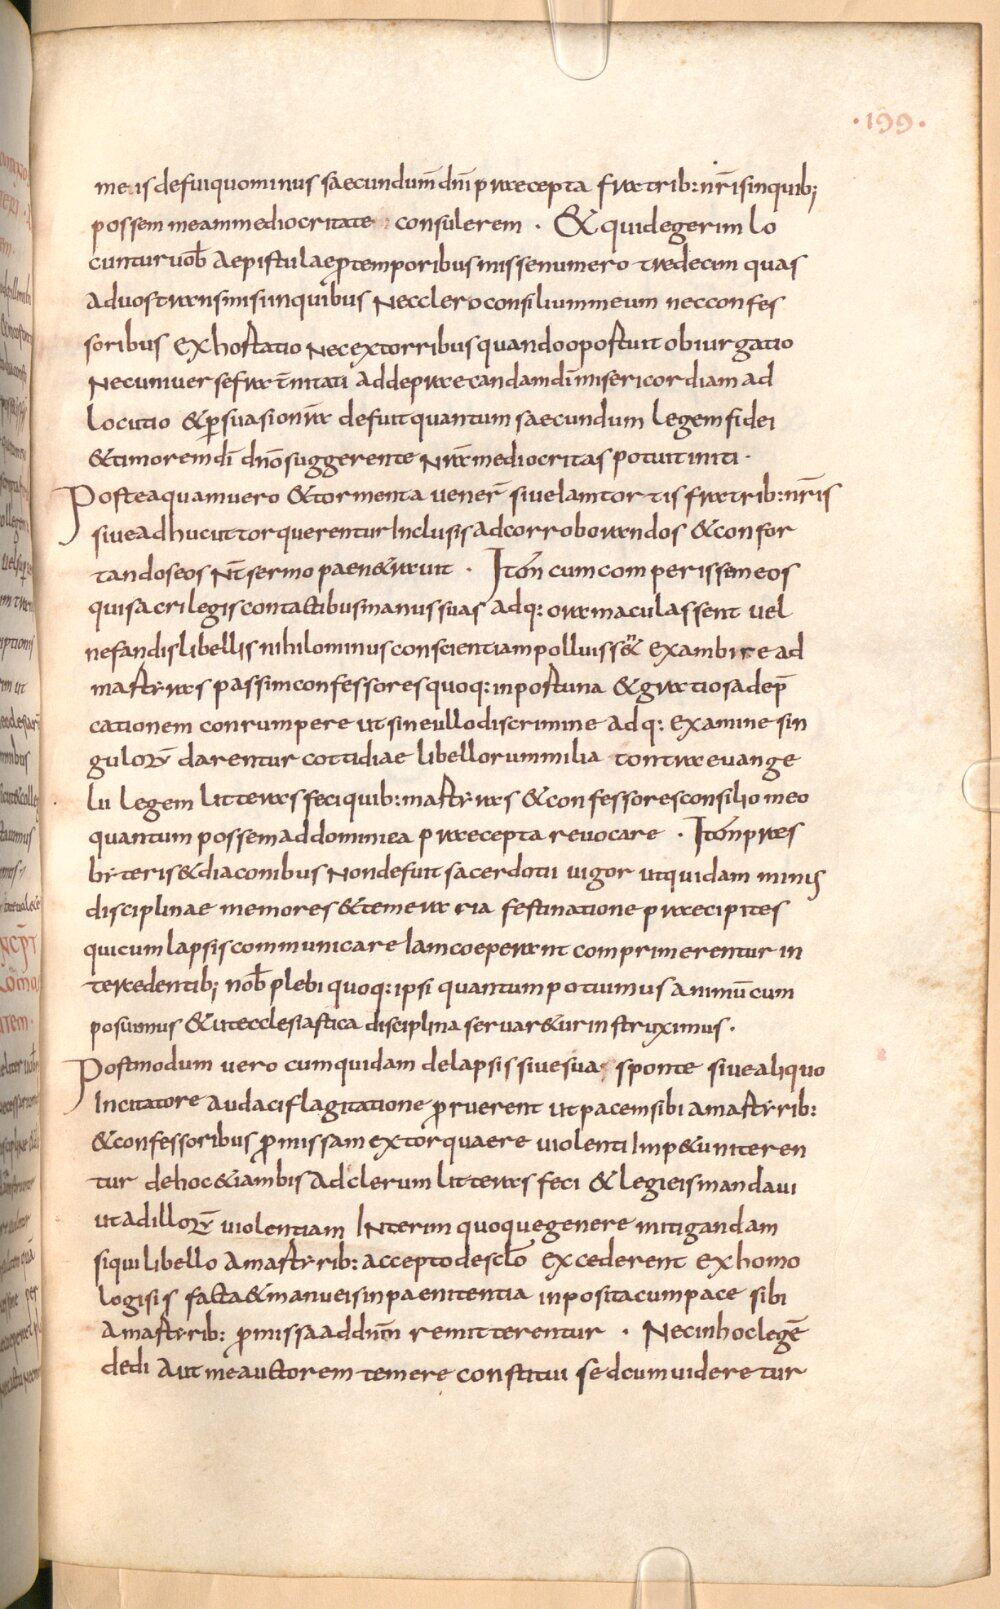 ·199·
meis defui quominus saecundum̄ dn̄i praecepta fratrib: nr̄is inquib;
possem meam mediocritate consulerem · & quidegerim lo
cuntur uob̄ aepistulae ꝓtemporibus missenumero tredecim quas
aduos transmisi inquibus necclero consilium meum necconfes
soribus exhostatio necextorribus quando opostuit obiurgatio
necuniuersefrat̄nitati addepraecandam dī misericordiam ad
locutio &ꝑsuasio nr̄a defuit quantum saecundum legem fidei
&timorem dī dn̄o suggerente nr̄a mediocritas potuit initi·
Posteaquam uero &tormenta uener̄ siue iam tortis fratrib: nr̄is
siue adhuc ut torquerentur inclusis adcorroborandos &confor
tandos eos nt̄ sermo paen&rauit · Itēm cum comperissem eos
qui sacrilegis contactibus manus suas adq: ora maculassent uel
nefandis libellis nihilominus conscientiam polluiss& exambire ad
mastyras passim confessores quoq: inpostuna &gratiosa dep̄
cationem conrumpere ut sine ullo discrimine adq: examine sin
gulorū darentur cottidiae libellorum milia contra euange
lii legem litteras feci quib: mastyras &confessores consilio meo
quantum possem addominica praecepta reuocare · Itēm praes
byteris &diaconibus non defuit sacerdotii uigor utquidam minus
disciplinae memores &temeraria festinatione praecipites
quicum lapsis communicare iam coeperant comprimerentur in
tercedentib; nob̄ plebi quoq: ipsi quantum potuimus animū cum
posuimus &utecclesiastica disciplina seruar&ur instruximus·
Postmodum uero cum quidam delapsis siue sua sponte siue aliquo
incitatore audaci flagitatione ꝓruerent ut pacem sibi amastyrib:
&confessoribus ꝓmissam extorquaere uiolenti imp&u niteren
tur dehoc &iambis adclerum litteras feci &legi eis mandaui
ut adillorū uiolentiam interim quoque genere mitigandam
siqui libello amastyrib: accepto desclō excederent exhomo
logisis facta &manu eis inpaenitentia inposita cum pace sibi
amastyrib: ꝓmissa addn̄m remitterentur · Necinhoc legē
dedi aut me auctorem temere constitui sed cum uideretur